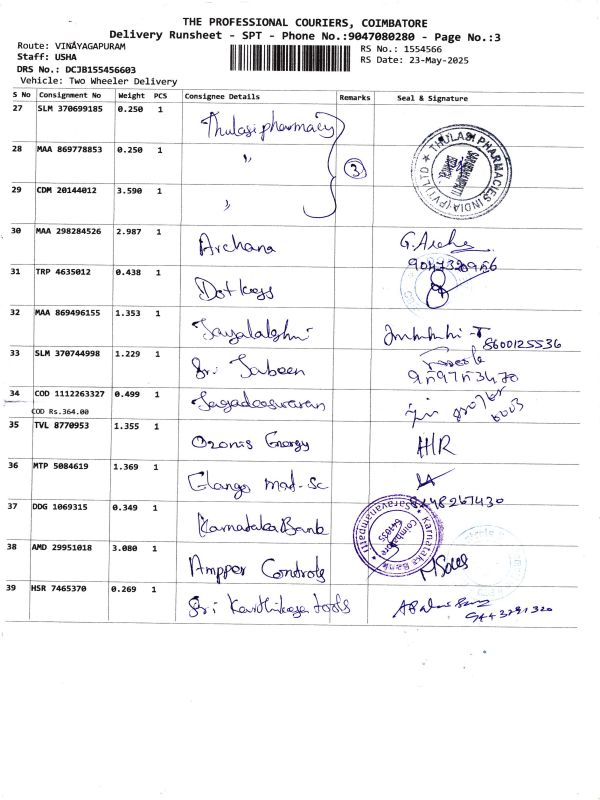 THE PROFESSIONAL COURIERS, COIMBATORE
Delivery Runsheet - SPT - Phone No.:9047080280 - Page No.:3
Route: VINAYAGAPURAM
RS No.: 1554566
Staff: USHA
RS Date: 23-May-2025
DRS No.: DCJB155456603
Vehicle: Two Wheeler Delivery
S No Consignment No Weight PCS Consignee Details Remarks Seal & Signature
27 SLM 370699185 0.250 1 Thulasi pharmacy
28 MAA 869778853 0.250 1 "
3
THULASI PHARMACIES INDIA (PVT) LTD
29 CDM 20144012 3.590 1 "
30 MAA 298284526 2.987 1 Archana
31 TRP 4635012 0.438 1 Dot keys
32 MAA 869496155 1.353 1 Jayalakshmi
8600125536
33 SLM 370744998 1.229 1 Sri Jabeen
34 COD 1112263327 0.499 1 Jagadeeswaran
COD Rs.364.00
35 TVL 8770953 1.355 1 Ozonis Energy H/R
36 MTP 5084619 1.369 1
37 DDG 1069315 0.349 1 Karnataka Bank
Karnataka Bank Saravanampatti Coimbatore 641035
38 AMD 29951018 3.080 1 Ampper Controls
39 HSR 7465370 0.269 1 Sri Karthikeya tools
9443291320